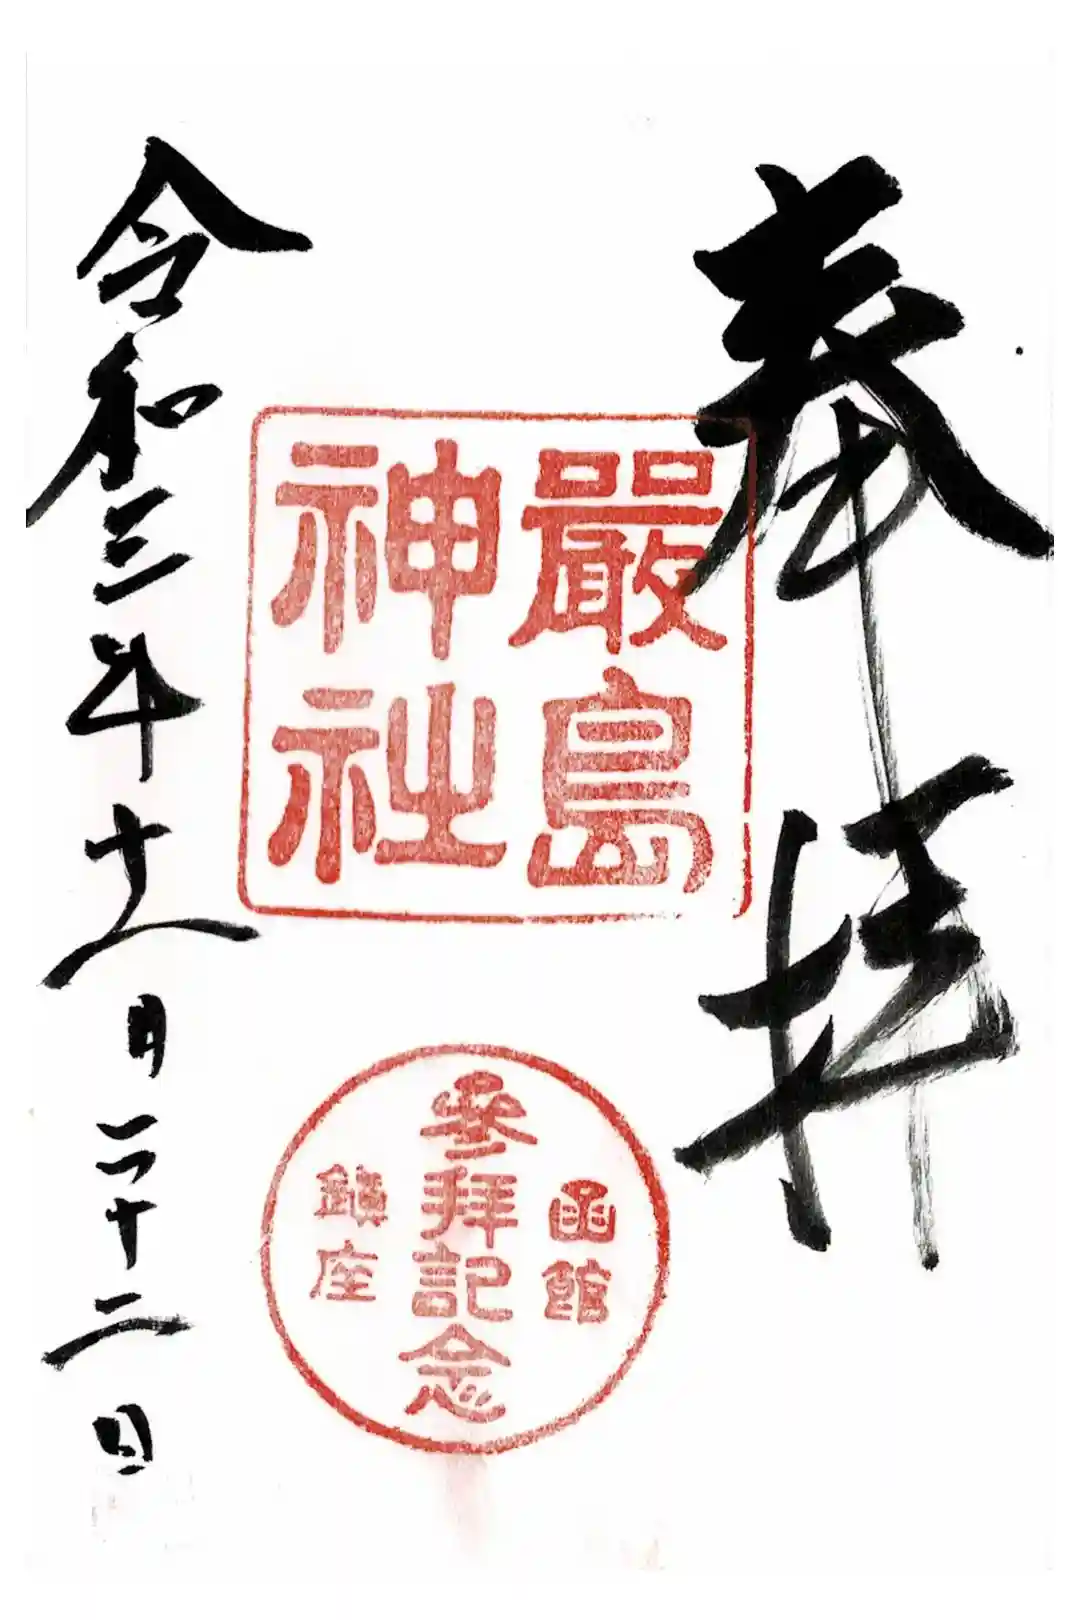 奉拝
嚴島
神社
函館
參拜記念
鎮座
令和三年十一月二十二日